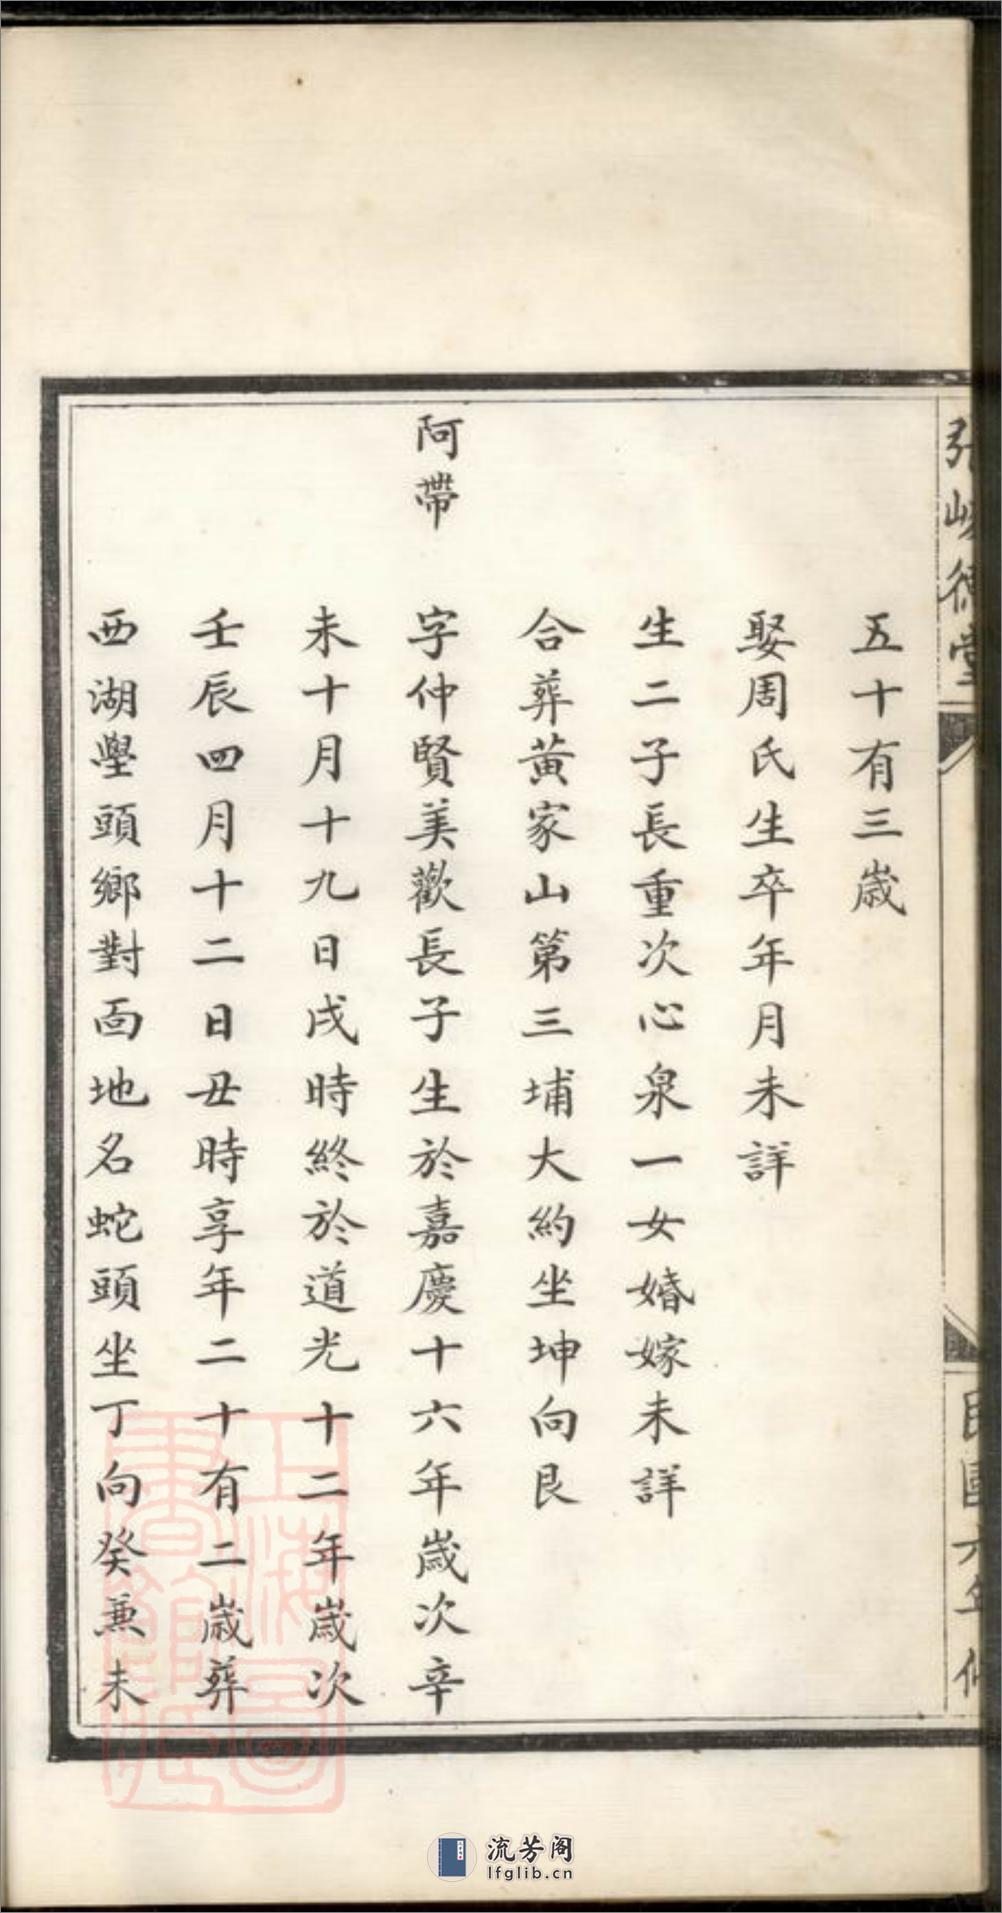 五十有三歲
娶周氏生卒年月未詳
生二子長重次心泉一女婚嫁未詳
合葬黃家山第三埔大約坐坤向艮
阿帶 字仲賢美歡長子生於嘉慶十六年歲次辛
未十月十九日戌時終於道光十二年歲次
壬辰四月十二日丑時享年二十有二歲葬
西湖壆頭鄉對面地名蛇頭坐丁向癸兼未
上海圖書館藏
流芳阁
lfglib.cn